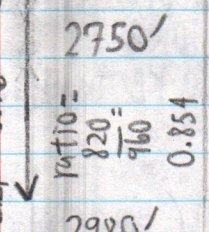 2750'
ratio =
820 =
960
0.854
2980'